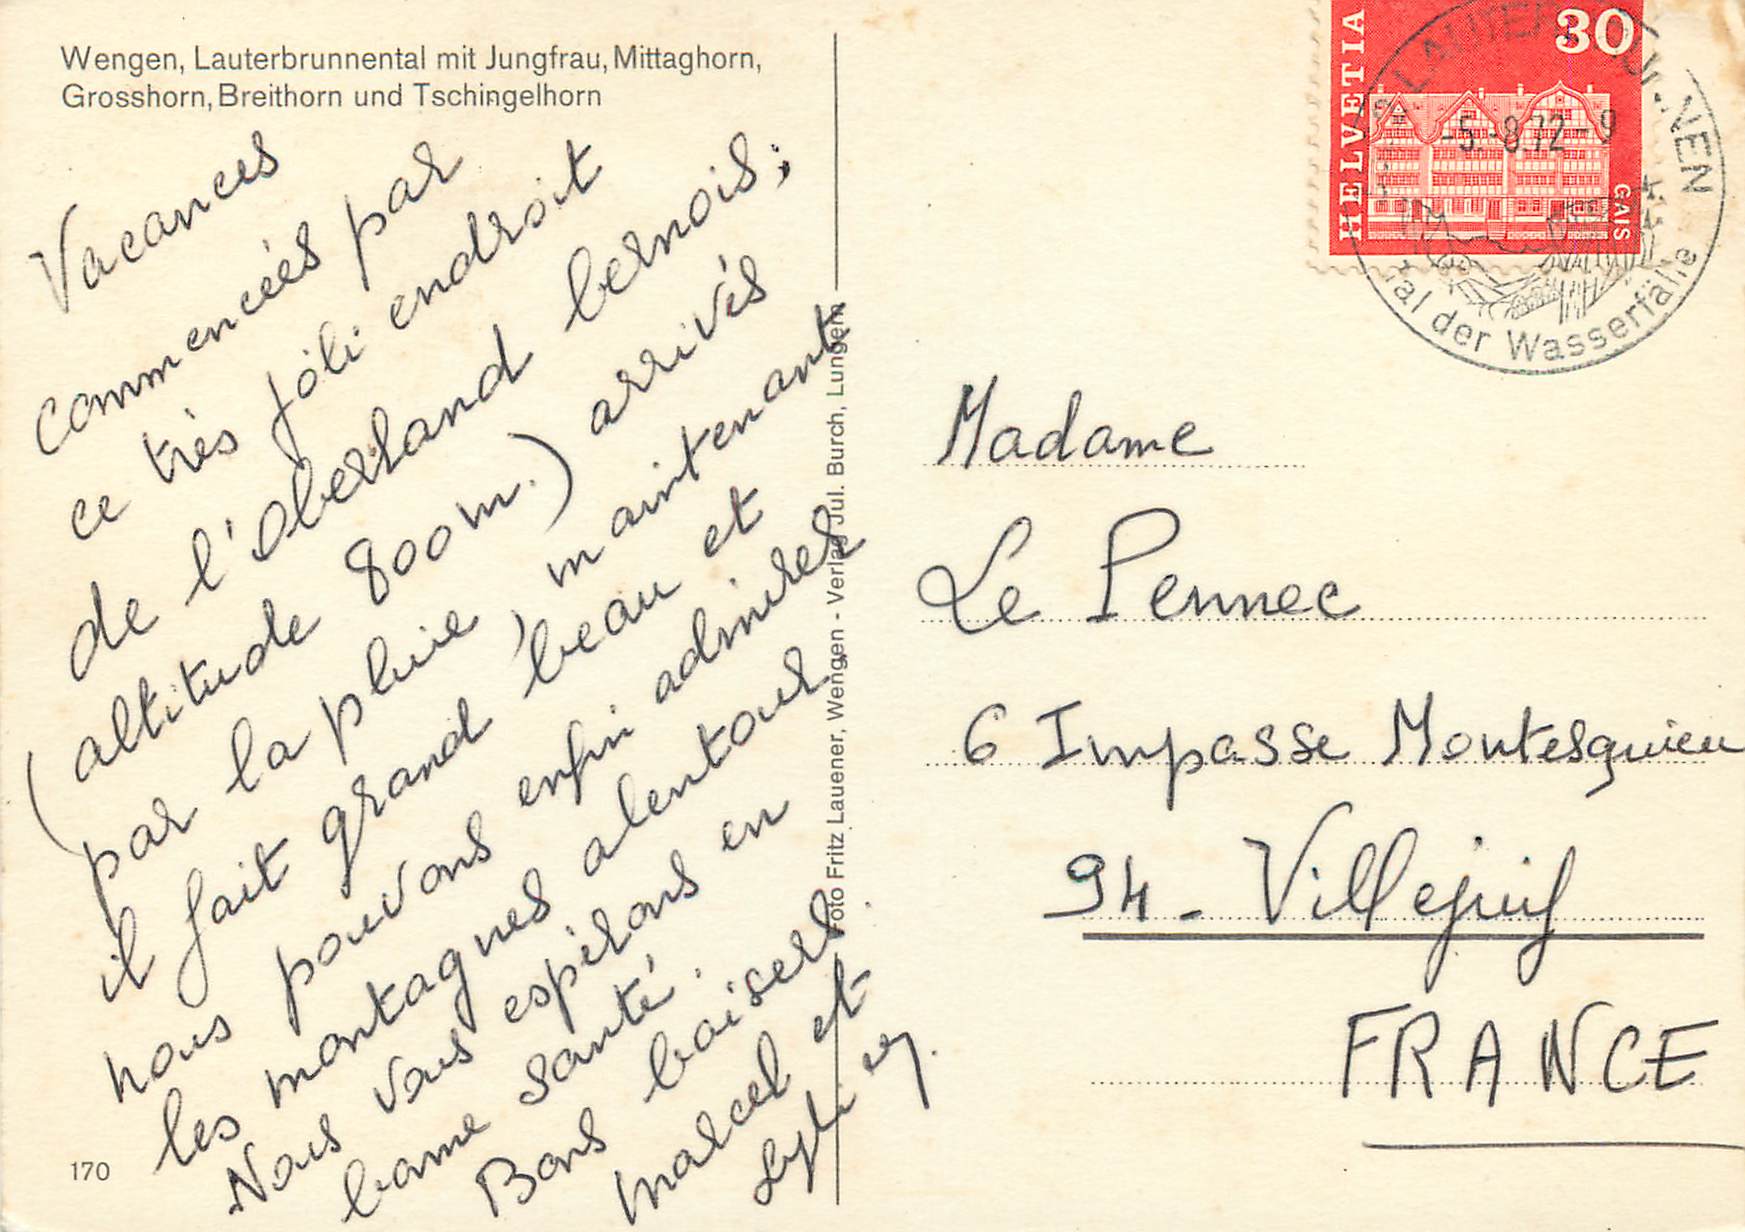 Wengen, Lauterbrunnental mit Jungfrau, Mittaghorn,
Grosshorn, Breithorn und Tschingelhorn
Vacances
commencées par
ce très joli endroit
de l'Oberland bernois;
(altitude 800m.) arrivés
par la pluie, maintenant
il fait grand beau et
nous pouvons enfin admirer
les montagnes alentour.
Nous vous espérons en
bonne santé.
Bons baisers.
Marcel et
170
Foto Fritz Lauener, Wengen - Verlag Jul. Burch, Lungern
HELVETIA
30
GAIS
LAUTERBRUNNEN
-5.-8.72-9
Tal der Wasserfälle
Madame
Le Pennec
6 Impasse Montesquieu
94 - Villejuif
FRANCE